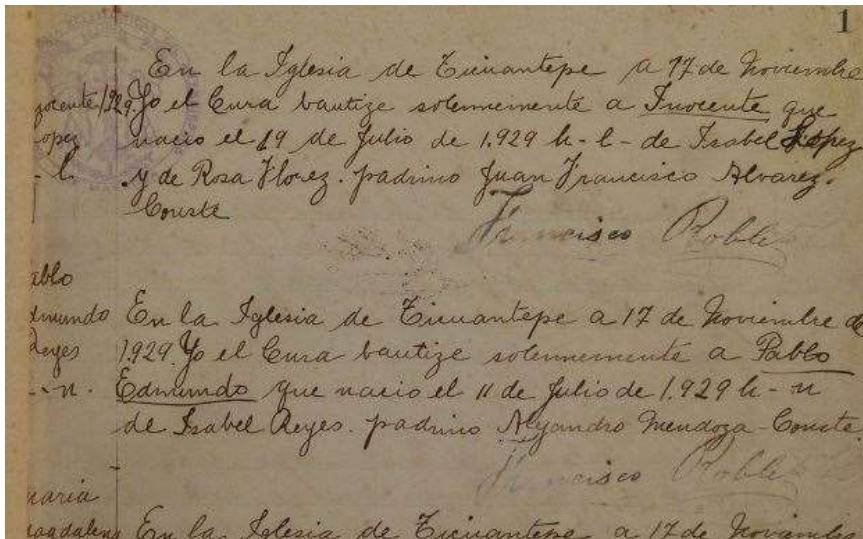 1
En la Iglesia de Ticuantepe a 17 de Noviembre
1929. Yo el Cura bautize solemnemente a Inocente que
nacio el 19 de Julio de 1.929 h - l - de Isabel López
y de Rosa Florez. padrino Juan Francisco Alvarez.
Conste
Francisco Robles
opez
- l
ablo
dmundo
Reyes
- - n.
En la Iglesia de Ticuantepe a 17 de Noviembre de
1.929. Yo el Cura bautize solemnemente a Pablo
Edmundo que nacio el 11 de Julio de 1.929 h - n
de Isabel Reyes. padrino Alejandro Mendoza - Conste.
Francisco Robles
maria
magdalena
En la Iglesia de Ticuantepe a 17 de Noviembre